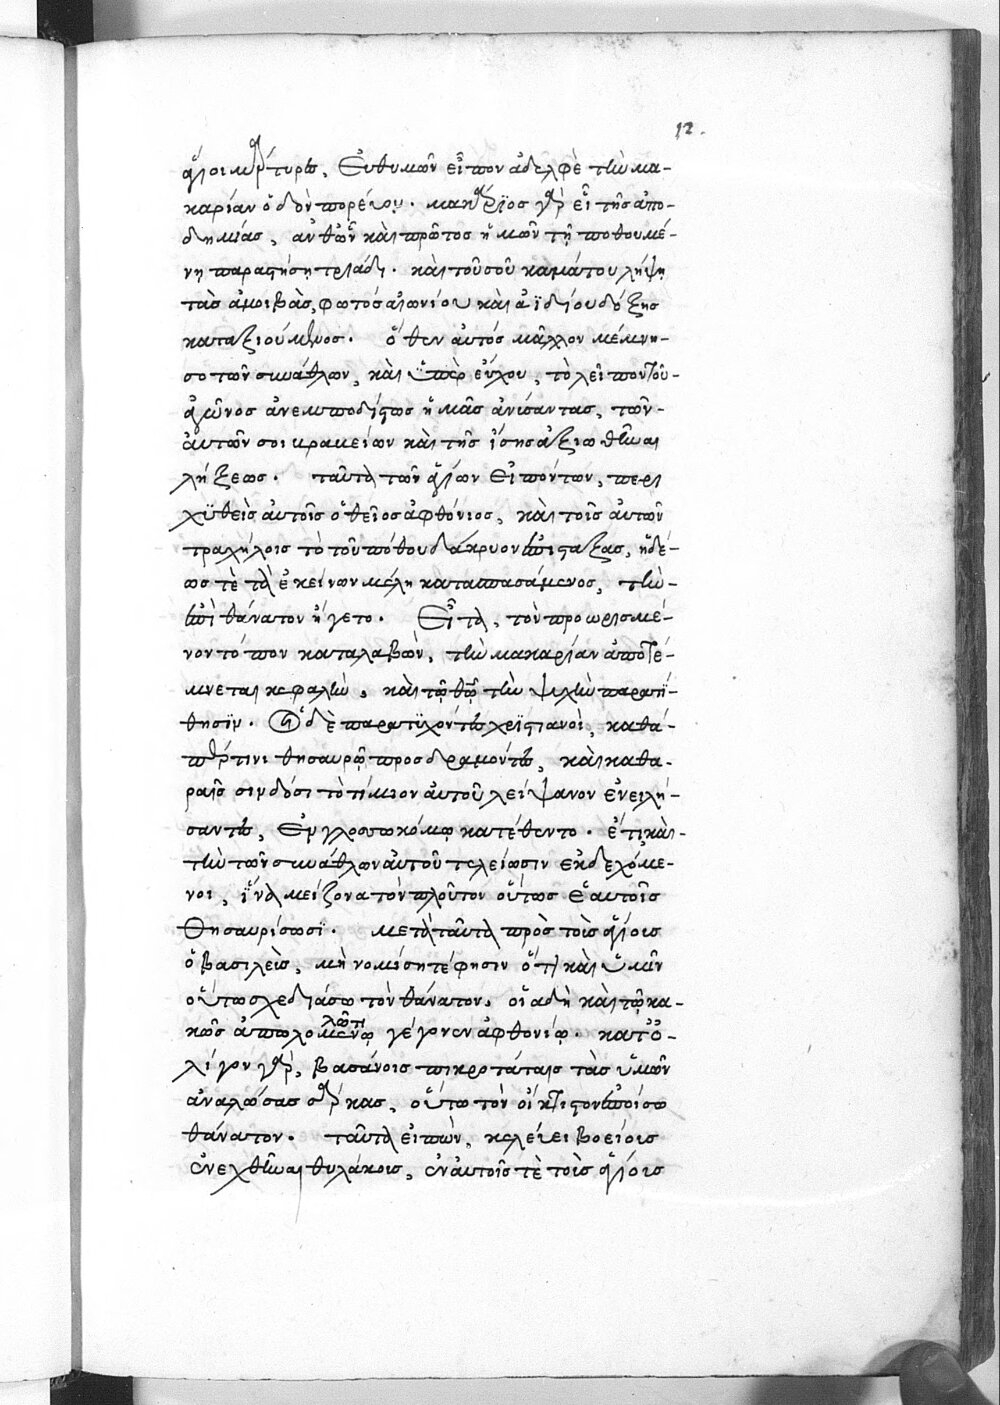 12.
ἅγιοι μάρτυρες, Εὐθυμῶν εἶπον ἀδελφὲ τὴν μα-
καρίαν ὁδὸν πορεύου. μακάριος γὰρ εἶ τῆς ἀπο-
δημίας, ἀνθ' ὧν καὶ πρῶτος ἡμῶν τῇ ποθουμέ-
νῃ παραστήσῃ τριάδι. καὶ τοῦ σοῦ καμάτου λήψῃ
τὰς ἀμοιβὰς, φωτὸς αἰωνίου καὶ ἀϊδίου δόξης
καταξιούμενος. ὅθεν αὐτός μᾶλλον μέμνη-
σο τῶν συνάθλων, καὶ ὑπὲρ εὔχου, τὸ λεῖπον τοῦ
ἀγῶνος ἀνεμποδίστως ἡμᾶς ἀνύσαντας, τῶν
αὐτῶν σοι καὶ τῆς ἴσης ἀξιωθῆναι
λήξεως. ταῦτα τῶν ἁγίων εἰπόντων, περι
χυθεὶς αὐτοῖς ὁ θεῖος ἀφθόνιος, καὶ τοῖς αὐτῶν
τραχήλοις τὸ τοῦ πόθου δάκρυον ἐπιστάξας, ἡδέ-
ως τὲ τὰ ἐκείνων μέλη κατασπασάμενος, τὴν
ἐπὶ θάνατον ἤγετο. Εἶτα, τὸν προωρισμέ-
νον τόπον καταλαβὼν, τὴν μακαρίαν ἀποτέ-
μνεται κεφαλὴν, καὶ τῷ θῷ τὴν ψυχὴν παρατί-
θησιν. Οἱ δὲ παρατυχόντες χριστιανοὶ, καθά-
περ τινι θησαυρῷ προσδραμόντες, καὶ καθα-
ραῖς σινδόσι τὸ τίμιον αὐτοῦ λείψανον ἐνειλή-
σαντες, ἐν γλωσσοκόμῳ κατέθεντο. ἔτι καὶ
τὴν τῶν συνάθλων αὐτοῦ τελείωσιν ἐκδεχόμε-
νοι, ἵνα μείζονα τὸν πλοῦτον οὕτως ἑαυτοῖς
Θησαυρίσωσι. μετὰ ταῦτα πρὸς τοὺς ἁγίους
ὁ βασιλεὺς, μὴ νομίσητέ φησιν ὅτι καὶ ὑμῖν
οὕτω σχεδιάσω τὸν θάνατον, οἷα δὴ καὶ τῷ κα-
κῶς ἀπολομένῳ γέγονεν ἀφθονίῳ. κατ' ὀ-
λίγον γὰρ, βασάνοις πικροτάταις τὰς ὑμῶν
ἀναλώσας σάρκας, οὕτω τὸν οἴκτιστον ἐποίσω
θάνατον. ταῦτα εἰπὼν, κελεύει βοείοις
ἐνεχθῆναι θυλάκοις, ἐν αὐτοῖς τὲ τοὺς ἁγίους